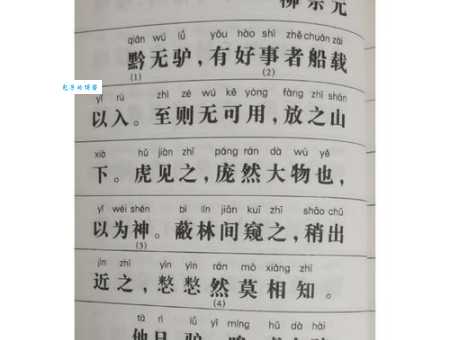 柳宗元
qián wú lǘ yǒu hào shì zhě chuán zài
黔无驴，有好事者船载
(1) (2)
yǐ rù zhì zé wú kě yòng fàng zhī shān
以入。至则无可用，放之山
xià hǔ jiàn zhī páng rán dà wù yě
下。虎见之，庞然大物也，
yǐ wéi shén bì lín jiān kuī zhī shāo chū
以为神。蔽林间窥之，稍出
(3)
jìn zhī yìn yìn rán mò xiāng zhī
近之，慭慭然莫相知。
(4)
tā rì lǘ yī míng hǔ dà hài
他日，驴一鸣，虎大骇